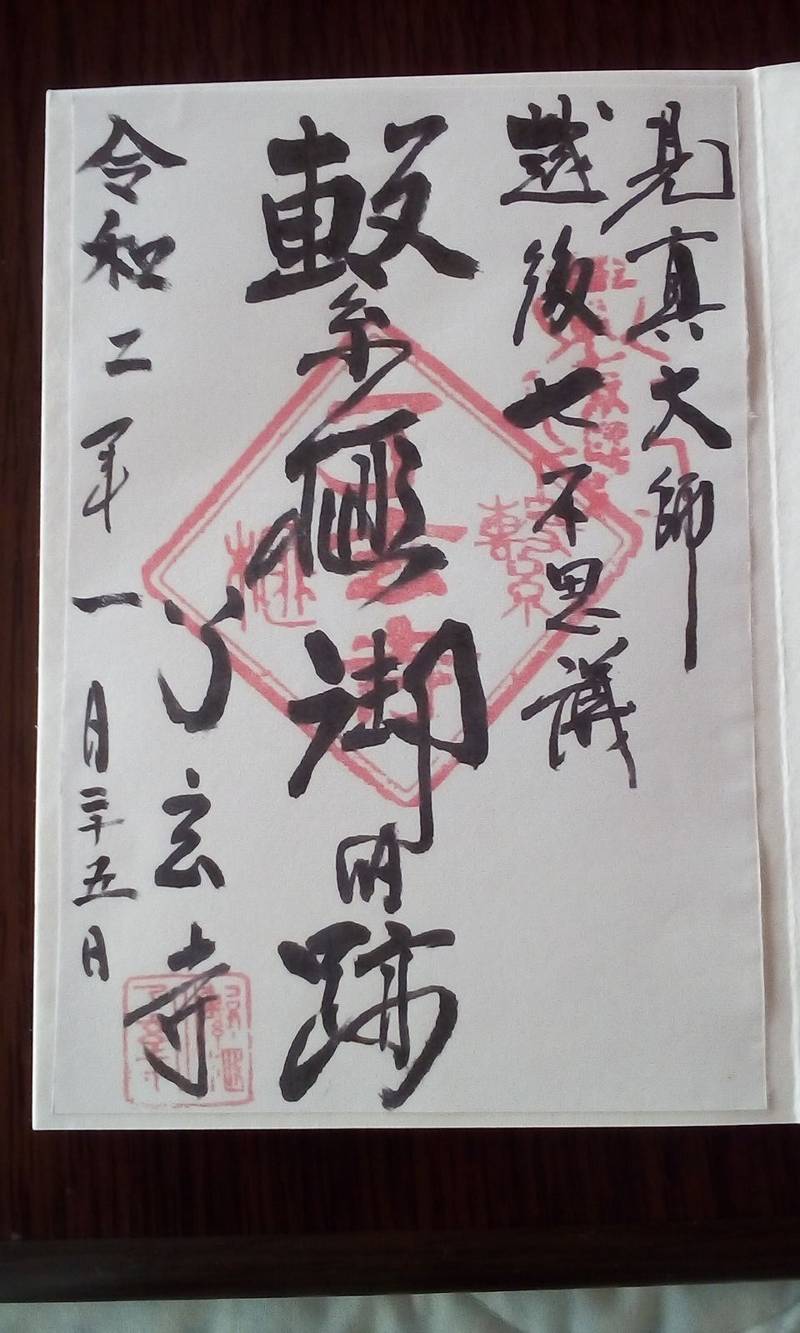 見真大師
越後七不思議
繫榧御旧跡
了玄寺
令和二年一月二十五日